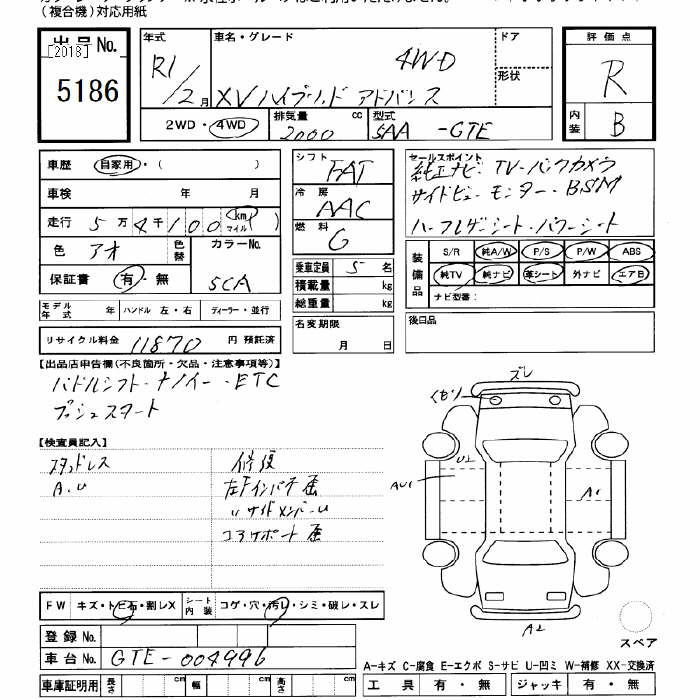 (複合機)対応用紙
出品No.
[2018]
5186
年式
R1/2月
車名・グレード
4WD
XVハイブリッド アドバンス
ドア
形状
評価点
R
内装
B
2WD・4WD
排気量 cc
2000
型式
5AA -GTE
車歴 自家用・( )
車検 年 月
走行 5万4千100 km マイル ( )
色 アオ 色替
カラーNo.
SCA
保証書 有・無
シフト FAT
冷房 AAC
燃料 G
乗車定員 5 名
積載量 kg
総重量 kg
セールスポイント
純正ナビ・TV・バックカメラ
サイドビューモニター・BSM
ハーフレザーシート・パワーシート
装備品
S/R 純A/W P/S P/W ABS
純TV 純ナビ 革シート 外ナビ エアB
ナビ型番:
モデル年式 年 ハンドル 左・右 ディーラー・並行
名変期限
月 日
後日品
リサイクル料金 11870 円 預託済
【出品店申告欄(不良箇所・欠品・注意事項等)】
パドルシフト・ナノイー・ETC
プッシュスタート
【検査員記入】
スタッドレス
A.U
修復
左Fインパネ歪
〃サイドメンバーU
コアサポート歪
ズレ
U2
AU1
A1
A2
スペア
FW キズ・トビ石・割レX
シート内装 コゲ・穴・汚レ・シミ・破レ・スレ
登録No.
車台No. GTE-004996
車庫証明用 長さ cm 幅 cm 高さ cm
A-キズ C-腐食 E-エクボ S-サビ U-凹ミ W-補修 XX-交換済
工具 有・無 ジャッキ 有・無